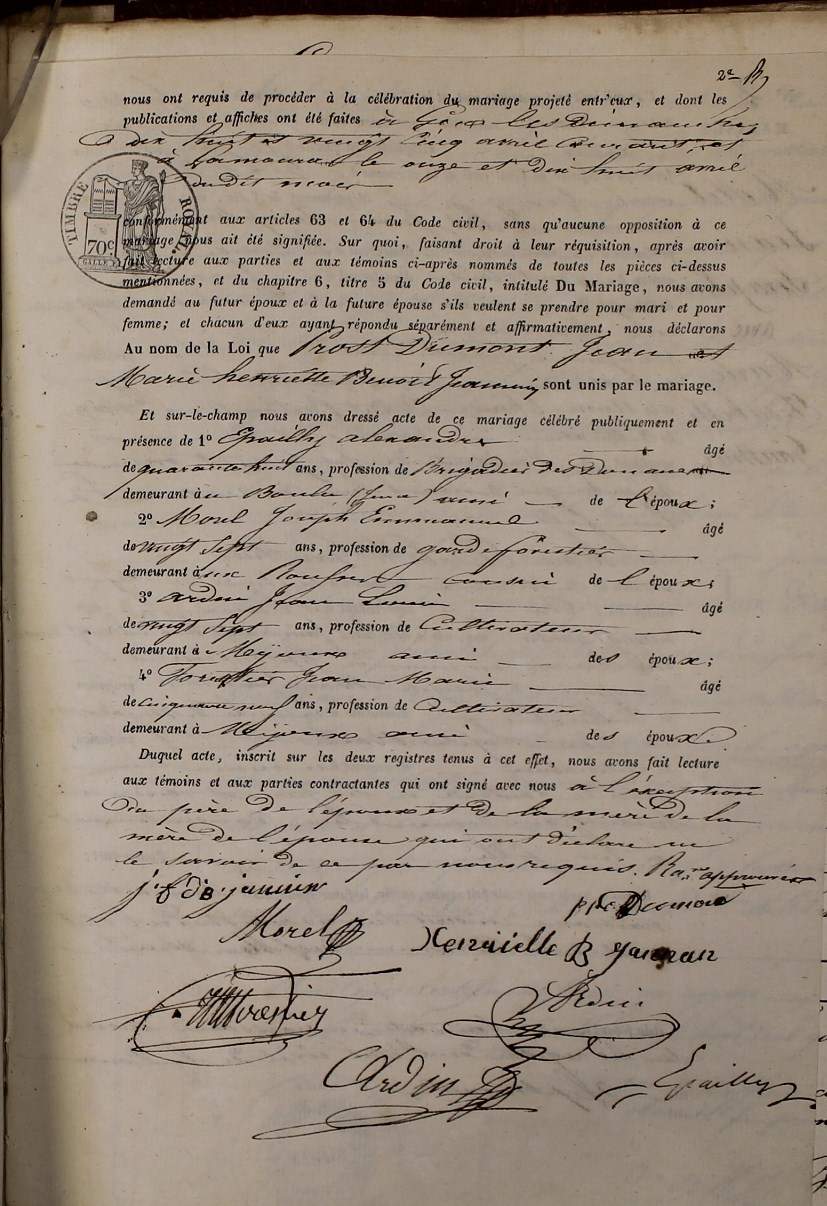 2e
nous ont requis de procéder à la célébration du mariage projeté entr'eux, et dont les
publications et affiches ont été faites à Gex les Dimanches
dix huit et vingt cinq avril courant, et
à Lamoura le onze et dix huit avril
dudit mois
TIMBRE ROYAL
70c
conformément aux articles 63 et 64 du Code civil, sans qu'aucune opposition à ce
mariage nous ait été signifiée. Sur quoi, faisant droit à leur réquisition, après avoir
fait lecture aux parties et aux témoins ci-après nommés de toutes les pièces ci-dessus
mentionnées, et du chapitre 6, titre 5 du Code civil, intitulé Du Mariage, nous avons
demandé au futur époux et à la future épouse s'ils veulent se prendre pour mari et pour
femme; et chacun d'eux ayant répondu séparément et affirmativement, nous déclarons
Au nom de la Loi que Prost Dumont Jean et
Marie henriette Benoit Jeannin sont unis par le mariage.
Et sur-le-champ nous avons dressé acte de ce mariage célébré publiquement et en
présence de 1° Epailly alexandre âgé
de quarante huit ans, profession de Brigadier des Douanes
demeurant à ami de l'époux;
2° Morel Joseph Emmanuel âgé
de vingt sept ans, profession de garde forestier
demeurant aux Rousses cousin de l'époux;
3° ardin Jean Louis âgé
de vingt sept ans, profession de Cultivateur
demeurant à Mijoux ami des époux;
4° Forestier Jean Marie âgé
de cinquante neuf ans, profession de Cultivateur
demeurant à Mijoux ami des époux
Duquel acte, inscrit sur les deux registres tenus à cet effet, nous avons fait lecture
aux témoins et aux parties contractantes qui ont signé avec nous à l'éxception
du père de l'époux et de la mère de la
mère de l'épouse qui ont déclaré ne
le savoir de ce par nous requis. approuvée
Dumont
Morel
Henriette B
Ardin
Ardin
Epailly